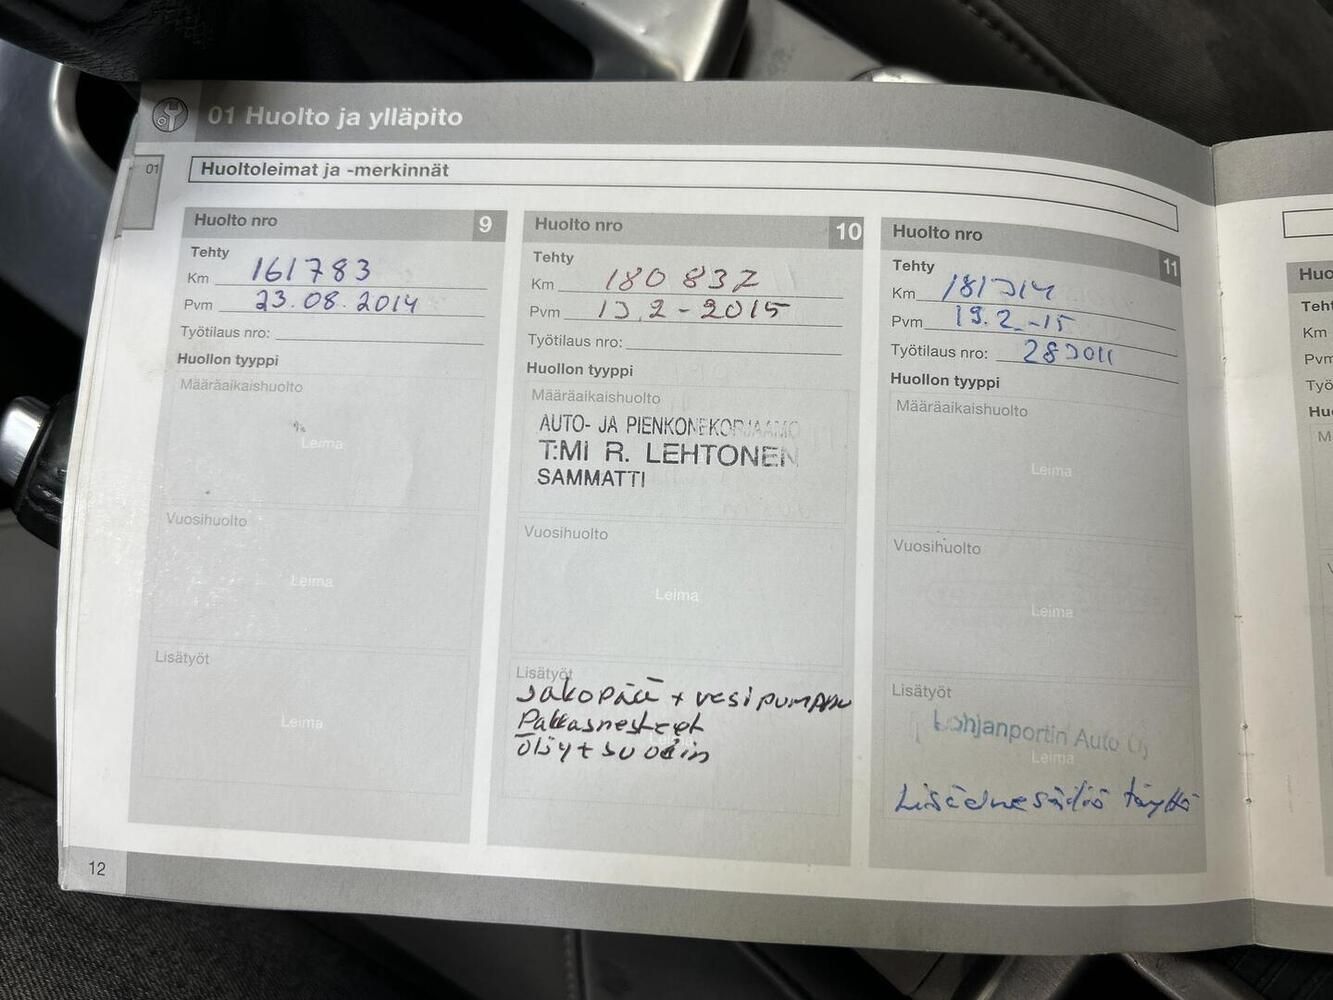 01 Huolto ja ylläpito
01
Huoltoleimat ja -merkinnät
Huolto nro 9
Tehty
Km 161783
Pvm 23.08.2014
Työtilaus nro:
Huollon tyyppi
Määräaikaishuolto
Leima
Vuosihuolto
Leima
Lisätyöt
Leima
Huolto nro 10
Tehty
Km 180 837
Pvm 13.2-2015
Työtilaus nro:
Huollon tyyppi
Määräaikaishuolto
AUTO- JA PIENKONEKORJAAMO
T:MI R. LEHTONEN
SAMMATTI
Vuosihuolto
Leima
Lisätyöt
Jakopää + vesipumppu
Pakkasnesteet
Öljyt + suodin
Huolto nro 11
Tehty
Km 181314
Pvm 19.2.-15
Työtilaus nro: 283011
Huollon tyyppi
Määräaikaishuolto
Leima
Vuosihuolto
Leima
Lisätyöt
Lohjanportin Auto Oy
Leima
Lisäainesäiliö täyttö
12
Km